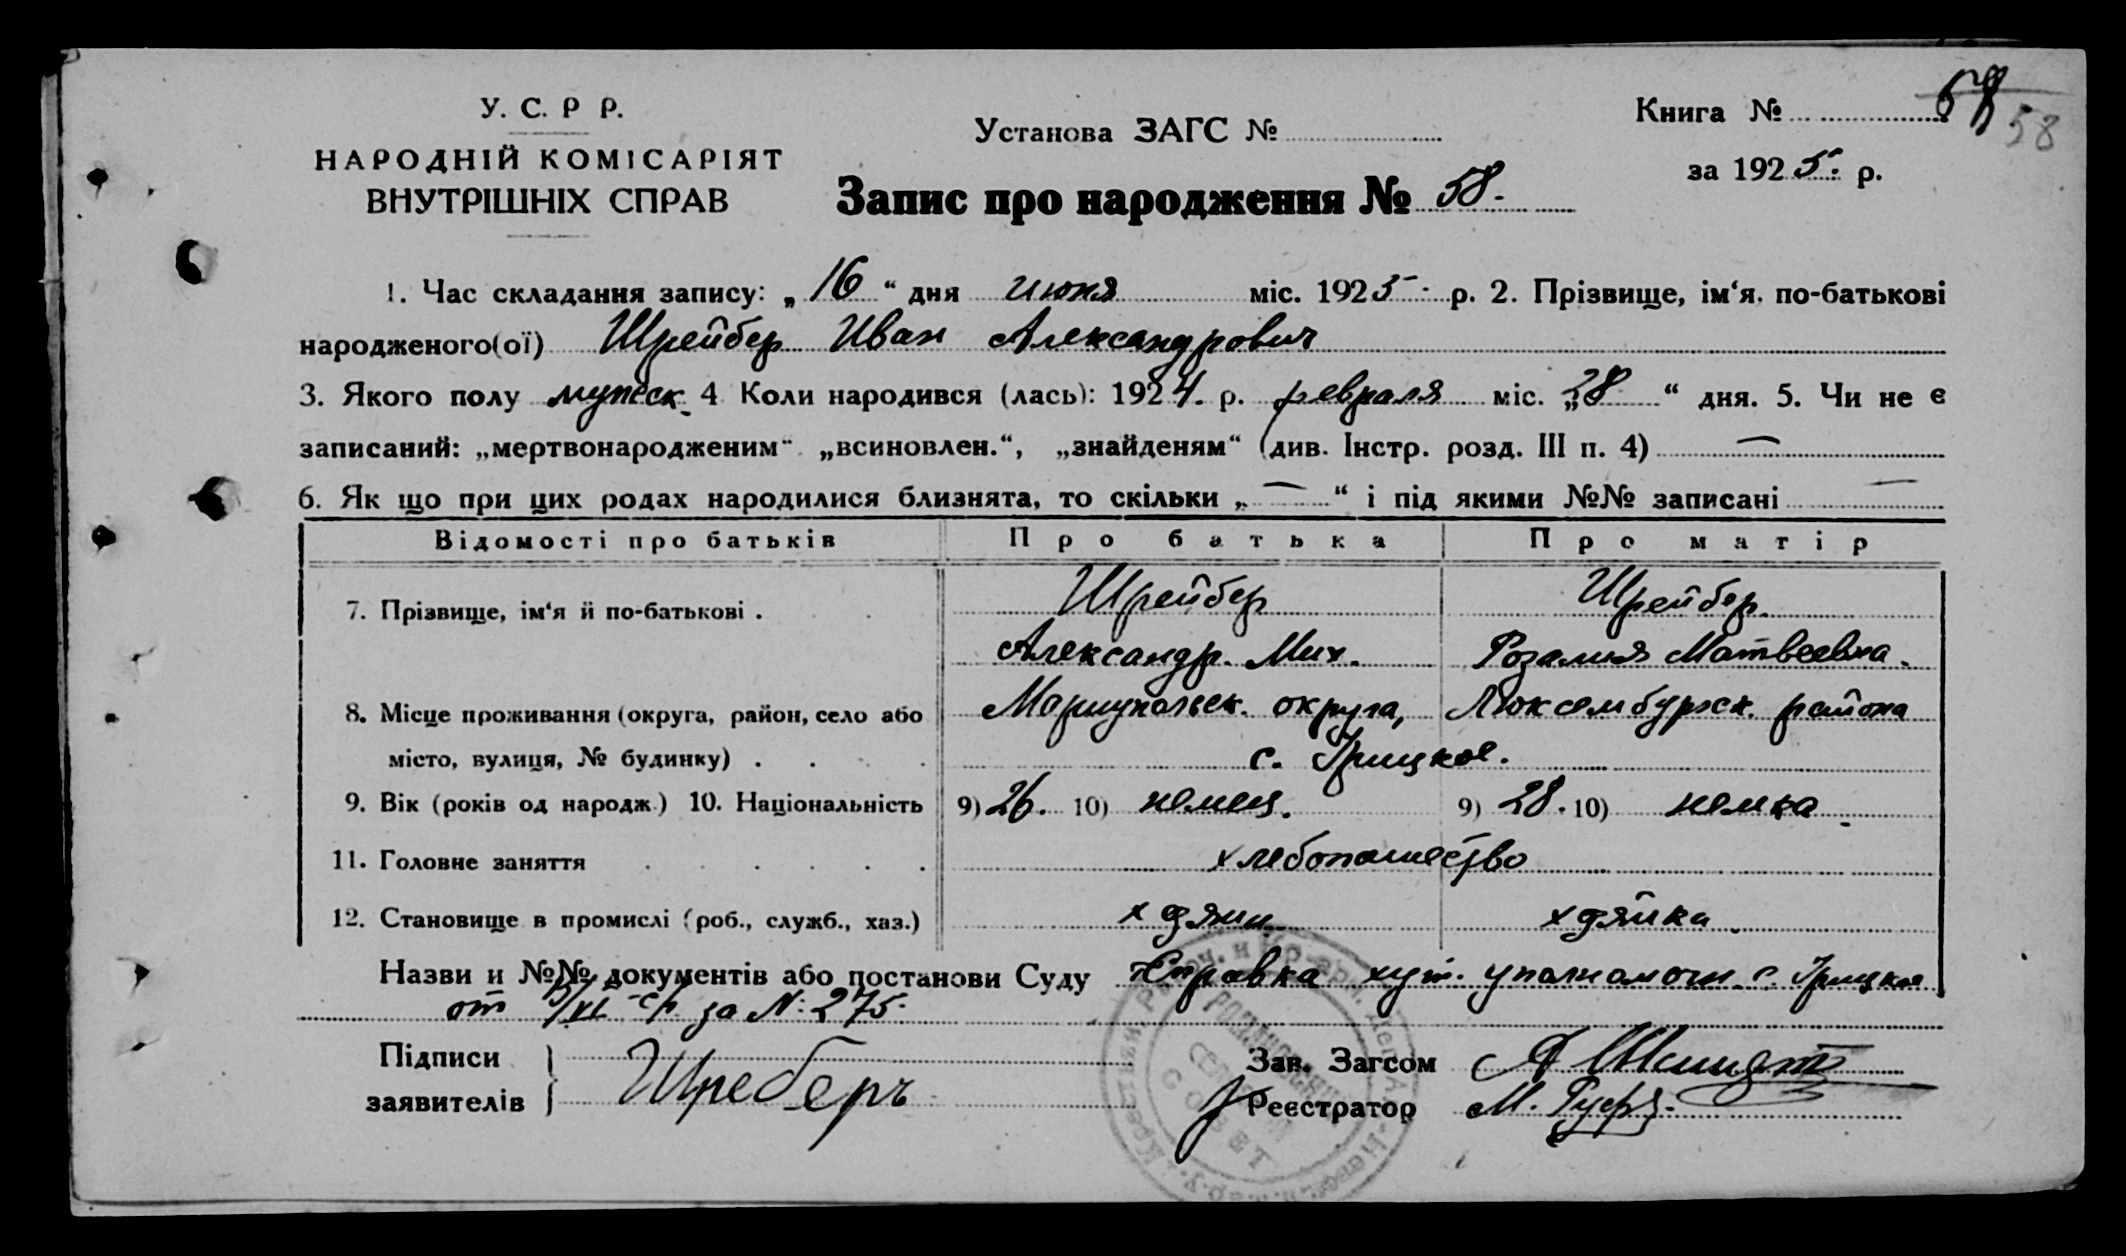 У. С. Р Р.
НАРОДНІЙ КОМІСАРІЯТ
ВНУТРІШНІХ СПРАВ
Установа ЗАГС №
Книга № 58
за 1925. р.
Запис про народження № 58.
1. Час складання запису: „16“ дня июня міс. 1925. р. 2. Прізвище, ім‘я, по-батькові
народженого(ої) Шрейбер Иван Александрович
3. Якого полу мужеск. 4 Коли народився (лась): 1924. р. февраля міс. „28“ дня. 5. Чи не є
записаний: „мертвонародженим“ „всиновлен.“, „знайденям“ (див. Інстр. розд. III п. 4) —
6. Як що при цих родах народилися близнята, то скільки „—“ і під якими №№ записані —
Відомості про батьків Про батька Про матір
7. Прізвище, ім‘я й по-батькові . Шрейбер Шрейбер.
Александр. Мих. Розалия Матвеевна.
8. Місце проживання (округа, район, село або Мариупольск. округа, Люксембургск. района
місто, вулиця, № будинку) . . . . с. Грицкое.
9. Вік (років од народж.) 10. Національність 9) 26. 10) немец. 9) 28. 10) немка.
11. Головне заняття . . . . . . хлебопашество
12. Становище в промислі (роб., служб., хаз.) хдяин хдяйка
Назви и №№ документів або постанови Суду Справка хут. уполномоч. с. Грицкое
от /VI с/г за №: 275.
Підписи
заявителів
Шреберъ
Зав. Загсом А Шмидт
Реєстратор М.
СОВЕТ
58